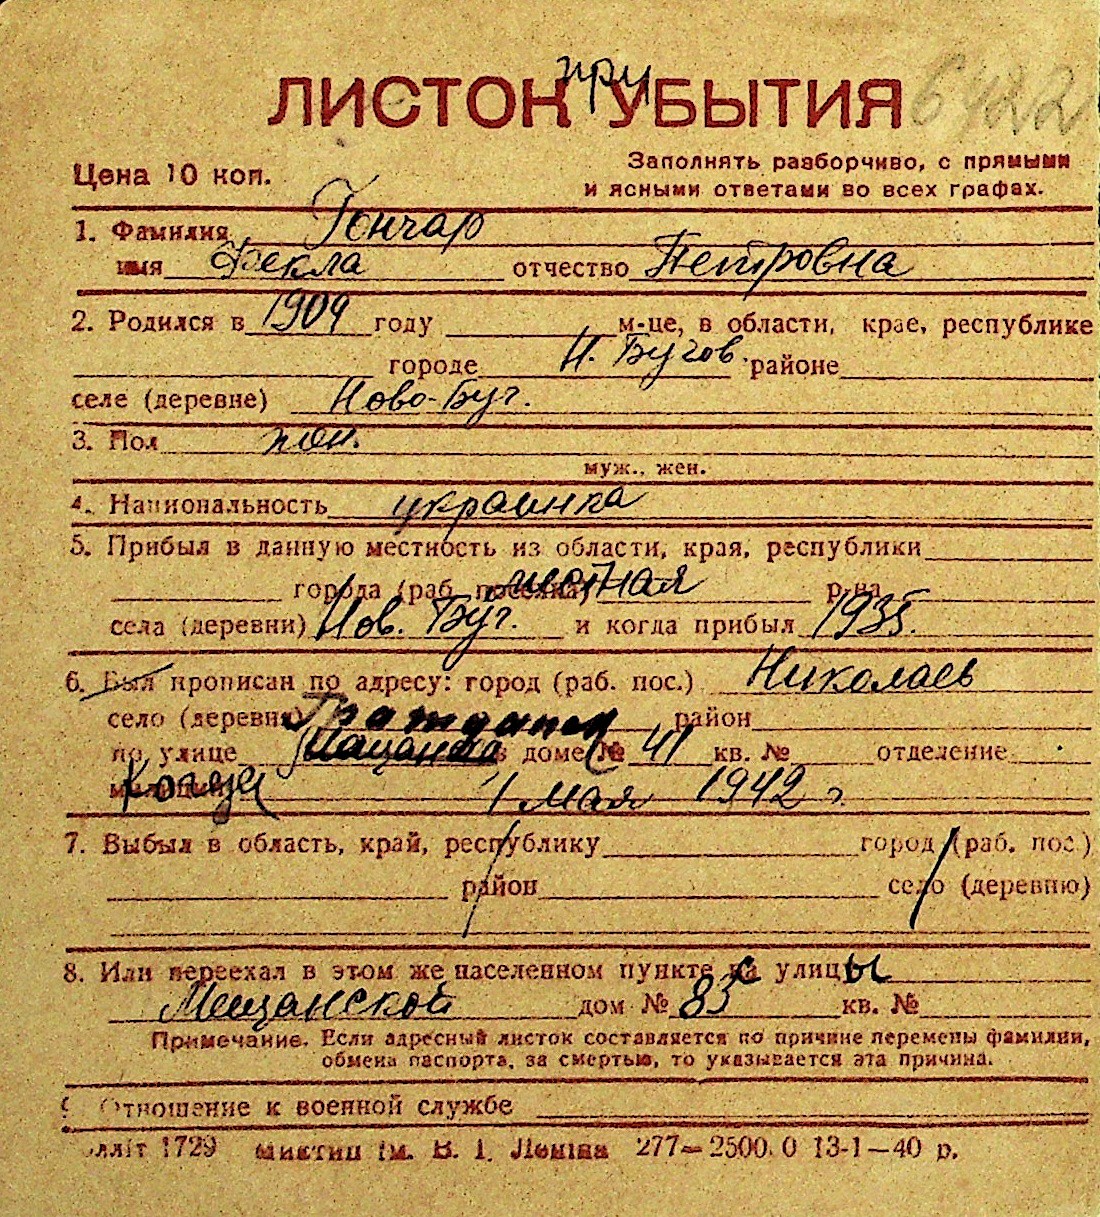 при
ЛИСТОК УБЫТИЯ 6422
Цена 10 коп.
Заполнять разборчиво, с прямыми
и ясными ответами во всех графах.
1. Фамилия Гончар
имя Фекла отчество Петровна
2. Родился в 1909 году м-це, в области, крае, республике
городе Н. Бугов. районе
селе (деревне) Ново-Буг.
3. Пол жен.
муж., жен.
4. Национальность украинка
5. Прибыл в данную местность из области, края, республики
города (раб. поселка) местная р-на
села (деревни) Нов. Буг. и когда прибыл 1935.
6. Был прописан по адресу: город (раб. пос.) Николаев
село (деревня) район
по улице в доме № 41 кв. № отделение
милиции Когда 1 мая 1942 г.
7. Выбыл в область, край, республику город (раб. пос.)
район село (деревню)
8. Или переехал в этом же населенном пункте с улицы
Мещанской дом № 83 кв. №
Примечание. Если адресный листок составляется по причине перемены фамилии,
обмена паспорта, за смертью, то указывается эта причина.
9. Отношение к военной службе
1729 ім. В. І. Леніна 277—2500. 0 13-1—40 р.